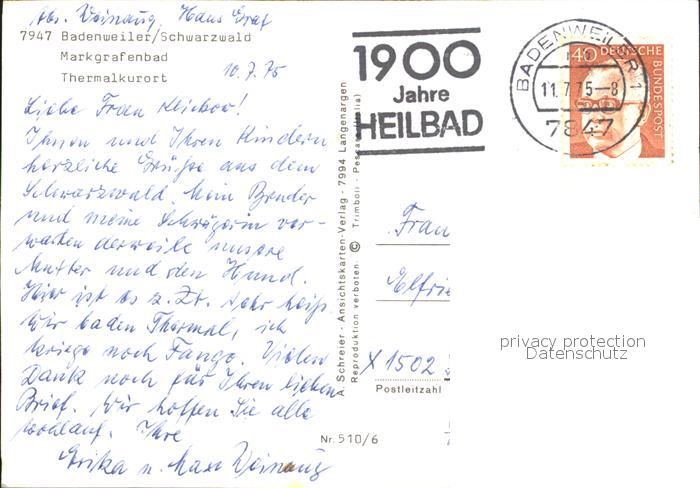 Abs. Weinaug, Haus Graf
7947 Badenweiler/Schwarzwald
Markgrafenbad
Thermalkurort
10.7.75
Liebe Frau
Ihnen und Ihren Kindern
herzliche Grüße aus dem
Schwarzwald. Mein Bruder
und meine Schwägerin ver-
warten derweile unsere
Mutter und den Hund.
Hier ist es z. Zt. sehr heiß.
Wir baden Thermal, ich
kriege noch Fango. Vielen
Dank noch für Ihren lieben
Brief. Wir hoffen Sie alle
wohlauf. Ihre
Erika u. Max Weinaug
A. Schreier - Ansichtskarten-Verlag - 7994 Langenargen
Reproduktion verboten © Trimboli - Pescara (Italia)
Nr. 510/6
1900
Jahre
HEILBAD
BADENWEILER 1
11.7.75-8
7847
40 DEUTSCHE
BUNDESPOST
Frau
Elfrie
X 1502
Postleitzahl
privacy protection
Datenschutz